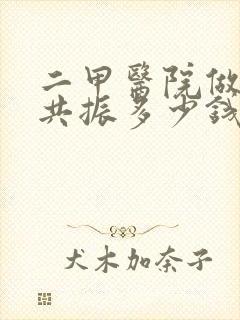 二甲醫院做
共振多少錢
犬木加奈子